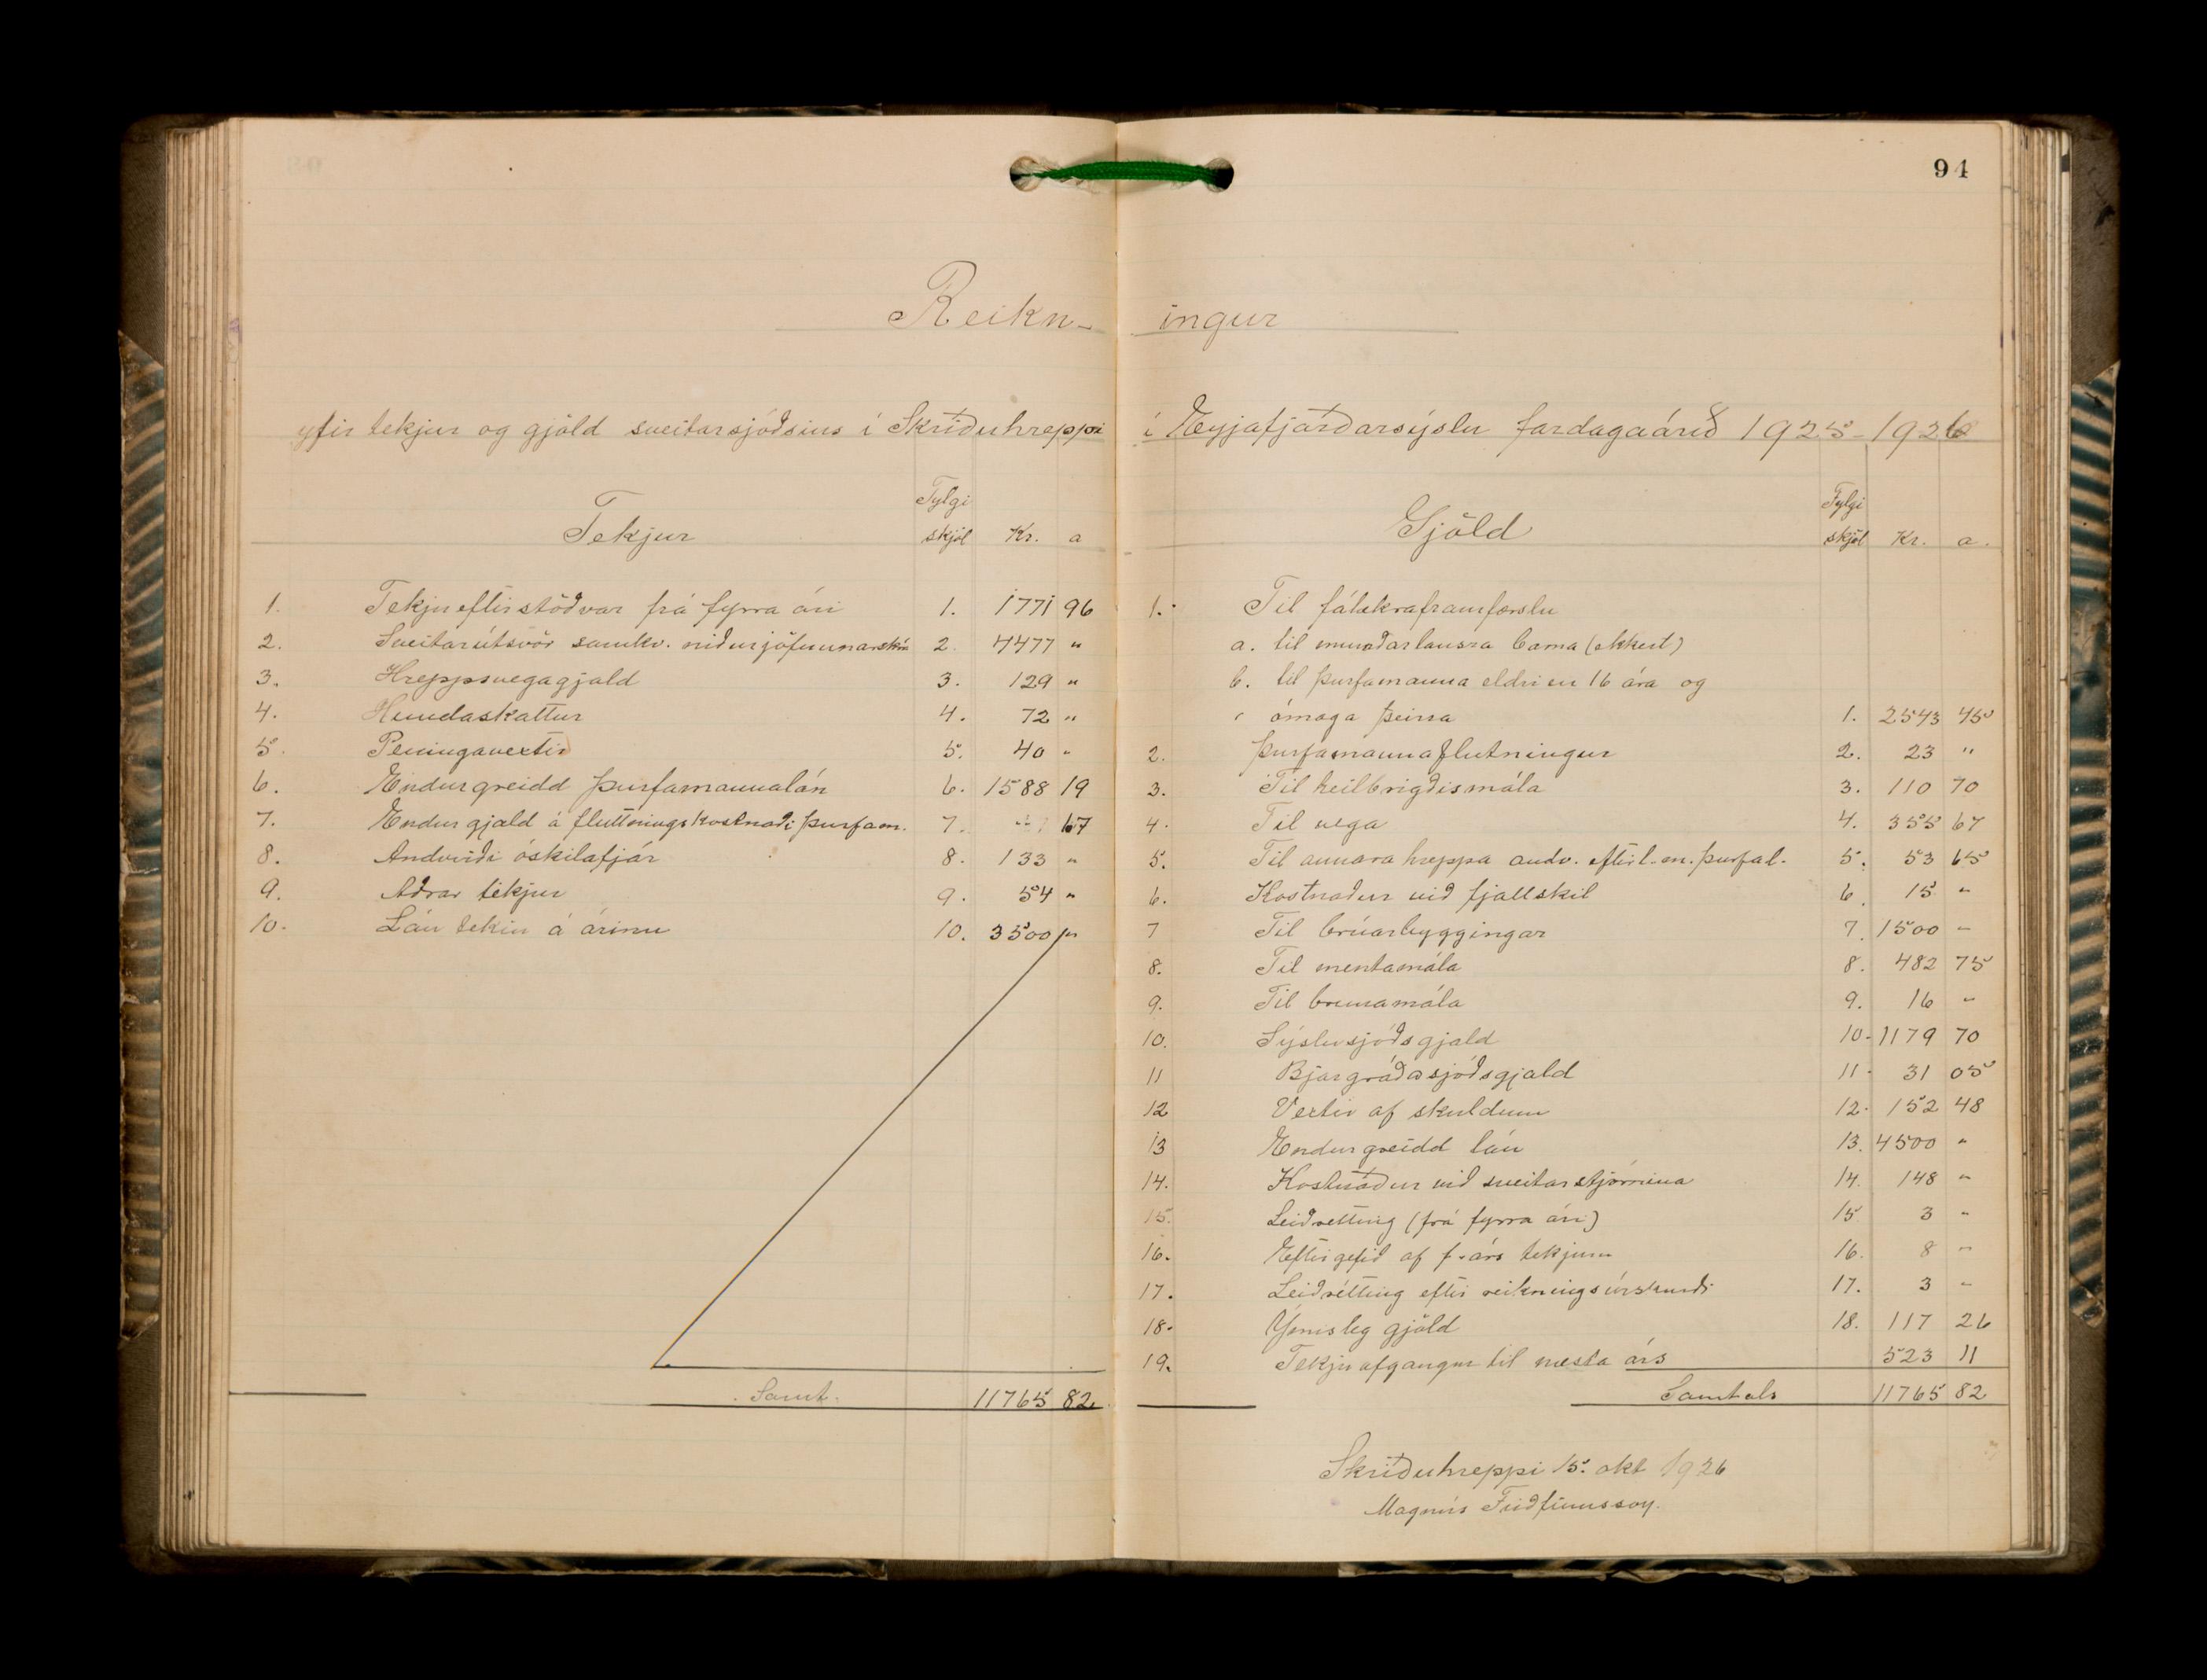 94
Reikn-ingur
yfir tekjur og gjöld sveitarsjóðsins í Skriðuhreppi í Eyjafjarðarsýslu fardagaárið 1925-1926
Tekjur Fylgi skjöl Kr. a
1. Tekjueftirstöðvar frá fyrra ári 1. 1771 96
2. Sveitarútsvör samkv. niðurjöfnunarskrá 2. 4477 "
3. Hreppsvegagjald 3. 129 "
4. Hundaskattur 4. 72 "
5. Peningavextir 5. 40 "
6. Endurgreidd þurfamannalán 6. 1588 19
7. Endurgjald á flutningskostnaði þurfam. 7. 67
8. Andvirði óskilafjár 8. 133 "
9. Aðrar tekjur 9. 54 "
10. Lán tekin á árinu 10. 3500 "
Samt. 11765 82
Gjöld Fylgi skjöl Kr. a.
1. Til fátækraframfærslu
a. til munaðarlausra barna (ekkert)
b. til þurfamanna eldri en 16 ára og
ómaga þeirra 1. 2543 45
2. Þurfamannaflutningur 2. 23 "
3. Til heilbrigðismála 3. 110 70
4. Til vega 4. 355 67
5. Til annara hreppa andv. eftirl. m. þurfal. 5. 53 65
6. Kostnaður við fjallskil 6. 15 "
7 Til brúarbyggingar 7. 1500 "
8. Til mentamála 8. 482 75
9. Til brunamála 9. 16 "
10. Sýslusjóðsgjald 10. 1179 70
11 Bjargráðasjóðsgjald 11. 31 05
12 Vextir af skuldum 12. 152 48
13 Endurgreidd lán 13. 4500 "
14. Kostnaður við sveitarstjórnina 14. 148 "
15. Leiðretting (frá fyrra ári) 15 3 "
16. Eftirgefið af f. árs tekjum 16. 8 "
17. Leiðrétting eftir reikningsúrskurði 17. 3 "
18. Ýmisleg gjöld 18. 117 26
19. Tekjuafgangur til næsta árs 523 11
Samtals 11765 82
Skriðuhreppi 15. okt 1926
Magnús Friðfinnsson.